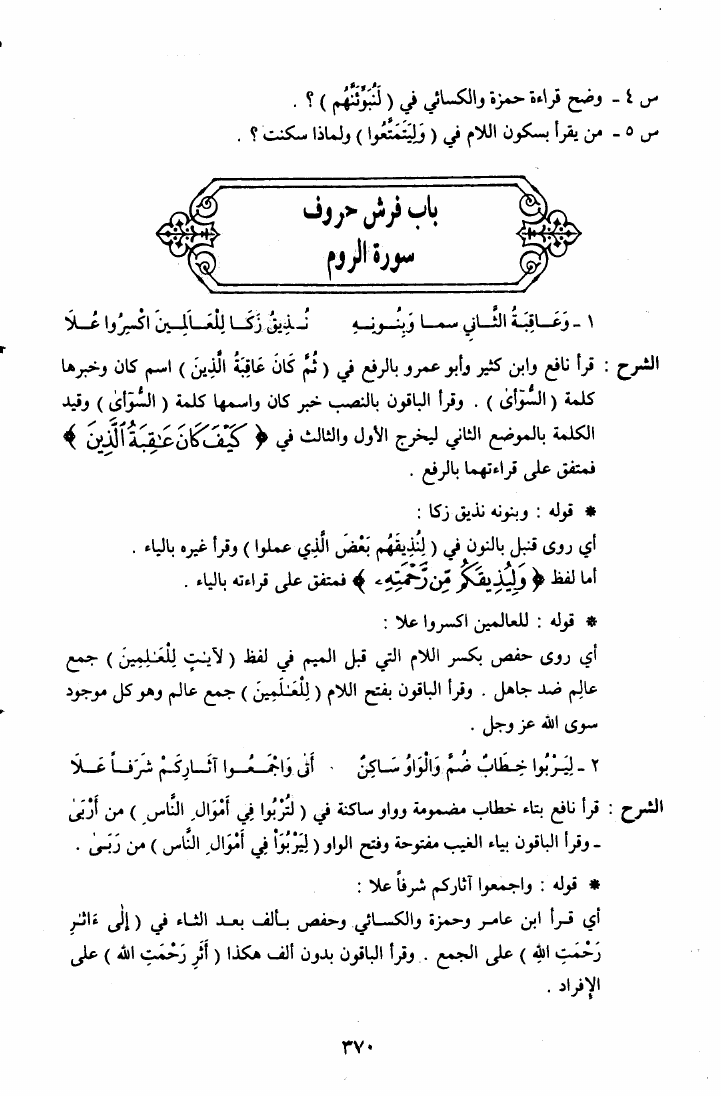 س ٤ ـ وضح قراءة حمزة والكسائي في ( لَنُبَوِّئَنَّهُم ) ؟ .
س ٥ ـ من يقرأ بسكون اللام في ( وَلِيَتَمَتَّعُوا ) ولماذا سكنت ؟ .
باب فرش حروف
سورة الروم
١ ـ وَعَـاقِبَةُ الثَّـانِي سمـا وَبِنُـونِـهِ نُـذِيقُ زَكَـا لِلْعَـالَمِـينَ اكْسِرُوا عُـلَا
الشرح : قرأ نافع وابن كثير وأبو عمرو بالرفع في ( ثُمَّ كَانَ عَاقِبَةُ الَّذِينَ ) اسم كان وخبرها
كلمة ( السُّوٓأىٰ ) . وقرأ الباقون بالنصب خبر كان واسمها كلمة ( السُّوٓأىٰ ) وقيد
الكلمة بالموضع الثاني ليخرج الأول والثالث في ﴿ كَيْفَ كَانَ عَٰقِبَةُ ٱلَّذِينَ ﴾
فمتفق على قراءتهما بالرفع .
* قوله : وبنونه نذيق زكا :
أي روى قنبل بالنون في ( لِنُذِيقَهُم بَعْضَ الَّذِي عملوا ) وقرأ غيره بالياء .
أما لفظ ﴿ وَلِيُذِيقَكُم مِّن رَّحْمَتِهِۦ ﴾ فمتفق على قراءته بالياء .
* قوله : للعالمين اكسروا علا :
أي روى حفص بكسر اللام التي قبل الميم في لفظ ( لآيَٰتٍ لِلْعَٰلِمِينَ ) جمع
عالِم ضد جاهل . وقرأ الباقون بفتح اللام ( لِلْعَٰلَمِينَ ) جمع عالم وهو كل موجود
سوى الله عز وجل .
٢ ـ لِيَـرْبُوا خِطَـابٌ ضُمَّ وَالْوَاوُ سَـاكِنٌ أَتَى وَاجْمَعُـوا آثَـارِكَمْ شَرَفـاً عَـلَا
الشرح : قرأ نافع بتاء خطاب مضمومة وواو ساكنة في ( لتُرْبُوا فِي أَمْوَالِ النَّاسِ ) من أَرْبَىٰ
ـ وقرأ الباقون بياء الغيب مفتوحة وفتح الواو ( لِيَرْبُوَاْ فِي أَمْوَالِ النَّاس ) من رَبَـىٰ .
* قوله : واجمعوا آثاركم شرفاً علا :
أي قـرأ ابن عامـر وحمزة والكسـائي وحفص بـألف بعـد الثـاء في ( إِلَى ءَاثَـٰرِ
رَحْمَتِ اللهِ ) على الجمع . وقرأ الباقون بدون ألف هكذا ( أَثَرِ رَحْمَتِ الله ) على
الإفراد .
٣٧٠